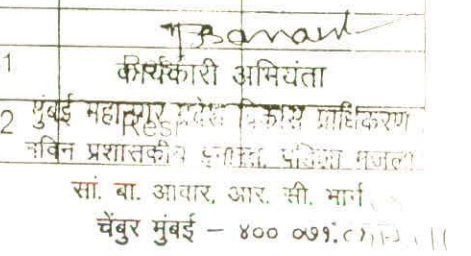 1 कार्यकारी अभियंता
2 मुंबई महानगर प्रदेश विकास प्राधिकरण
नविन प्रशासकीय इमारत, पहिला मजला
सां. बा. आवार, आर. सी. मार्ग
चेंबुर मुंबई – ४०० ०७१.